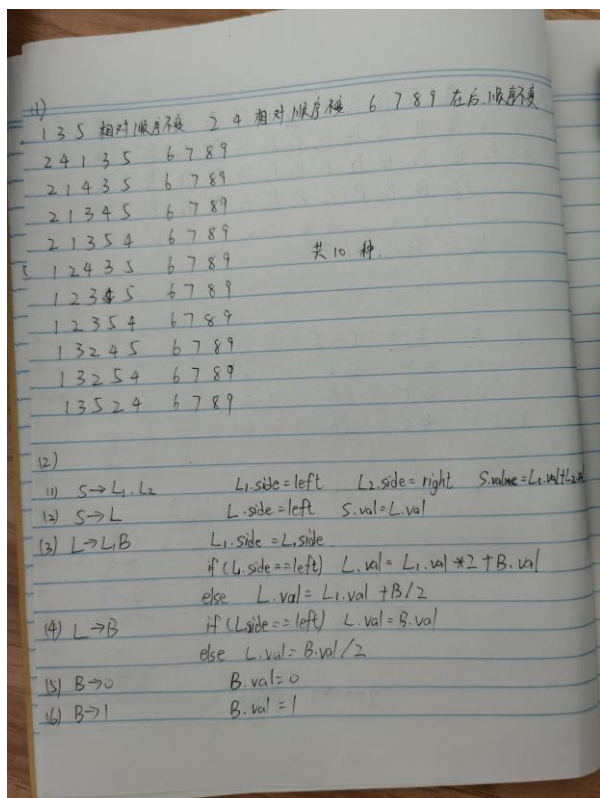 (1)
1 3 5 相对顺序不变 2 4 相对顺序不变 6 7 8 9 在后.顺序不变
2 4 1 3 5 6 7 8 9
2 1 4 3 5 6 7 8 9
2 1 3 4 5 6 7 8 9
2 1 3 5 4 6 7 8 9
1 2 4 3 5 6 7 8 9 共 10 种.
1 2 3 4 5 6 7 8 9
1 2 3 5 4 6 7 8 9
1 3 2 4 5 6 7 8 9
1 3 2 5 4 6 7 8 9
1 3 5 2 4 6 7 8 9
(2)
(1) S→L₁.L₂ L₁.side=left L₂.side=right S.value=L₁.val+L₂.
(2) S→L L.side=left S.val=L.val
(3) L→L₁B L₁.side=L.side
if(L.side==left) L.val=L₁.val*2+B.val
else L.val=L₁.val+B/2
(4) L→B if(L.side==left) L.val=B.val
else L.val=B.val/2
(5) B→0 B.val=0
(6) B→1 B.val=1